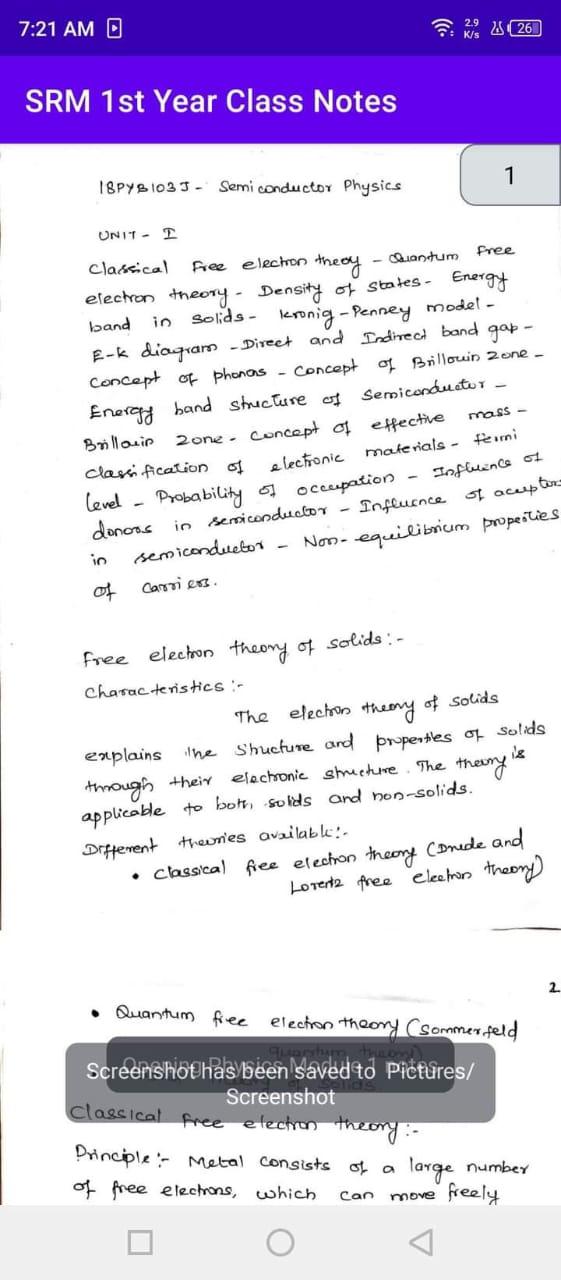 7:21 AM
2.9 K/s
26
SRM 1st Year Class Notes
1
18PYB103J - Semiconductor Physics
UNIT - I
Classical Free electron theoy - Quantum free
electron theory - Density of states - Energy
band in solids - kronig-Penney model -
E-k diagram - Direct and Indirect band gap -
Concept of phonons - Concept of Brillouin Zone -
Energy band structure of semiconductor -
Brillouin zone - Concept of effective mass -
Classification of electronic materials - fermi
level - Probability of occupation - Influence of
donors in semiconductor - Influence of aceptors
in semiconductor - Non-equilibrium properties
of carriers.
Free electron theory of solids :-
Characteristics :-
The electron theory of solids
explains the structure and properties of solids
through their electronic structure. The theory is
applicable to both solids and non-solids.
Different theories available :-
• Classical free electron theory (Drude and
Lorentz free electron theory)
2
• Quantum free electron theory (Sommerfeld
quantum theory)
Opening Physics Module 1 notes
of Solids
Screenshot has been saved to Pictures/
Screenshot
Classical free electron theory :-
Principle :- Metal consists of a large number
of free electrons, which can move freely